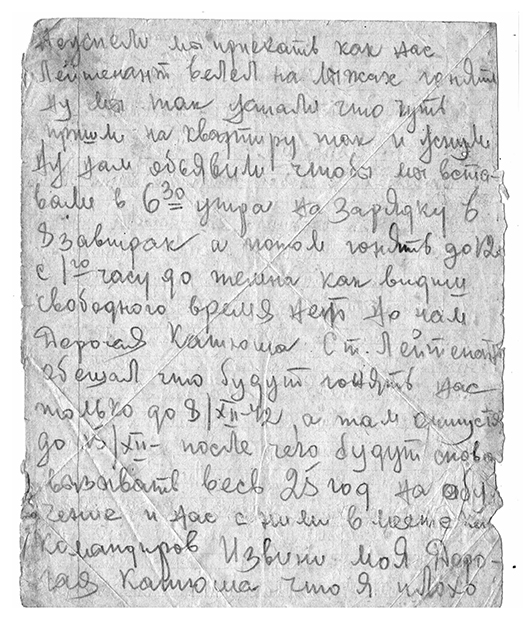 Неуспели мы приехать как нас
Лейтенант велел на лыжах гонять
Ну мы так устали что чуть
пришли на квартиру так и уснули
Ну нам объявили чтобы мы вста-
вали в 6 30 утра на зарядку в
8 завтрак а потом гонять до 12
с 1го часу до темна как видиш
свободного время нет Но нам
Дорогая Катюша Ст. Лейтенант
обещал что будут гонять нас
только до 8/XII-42 а там отпустят
до 15/XII- после чего будут снова
вызывать весь 25 год на обу-
чение и нас с ними вместе
командиров Извини моя Доро-
гая Катюша что я плохо